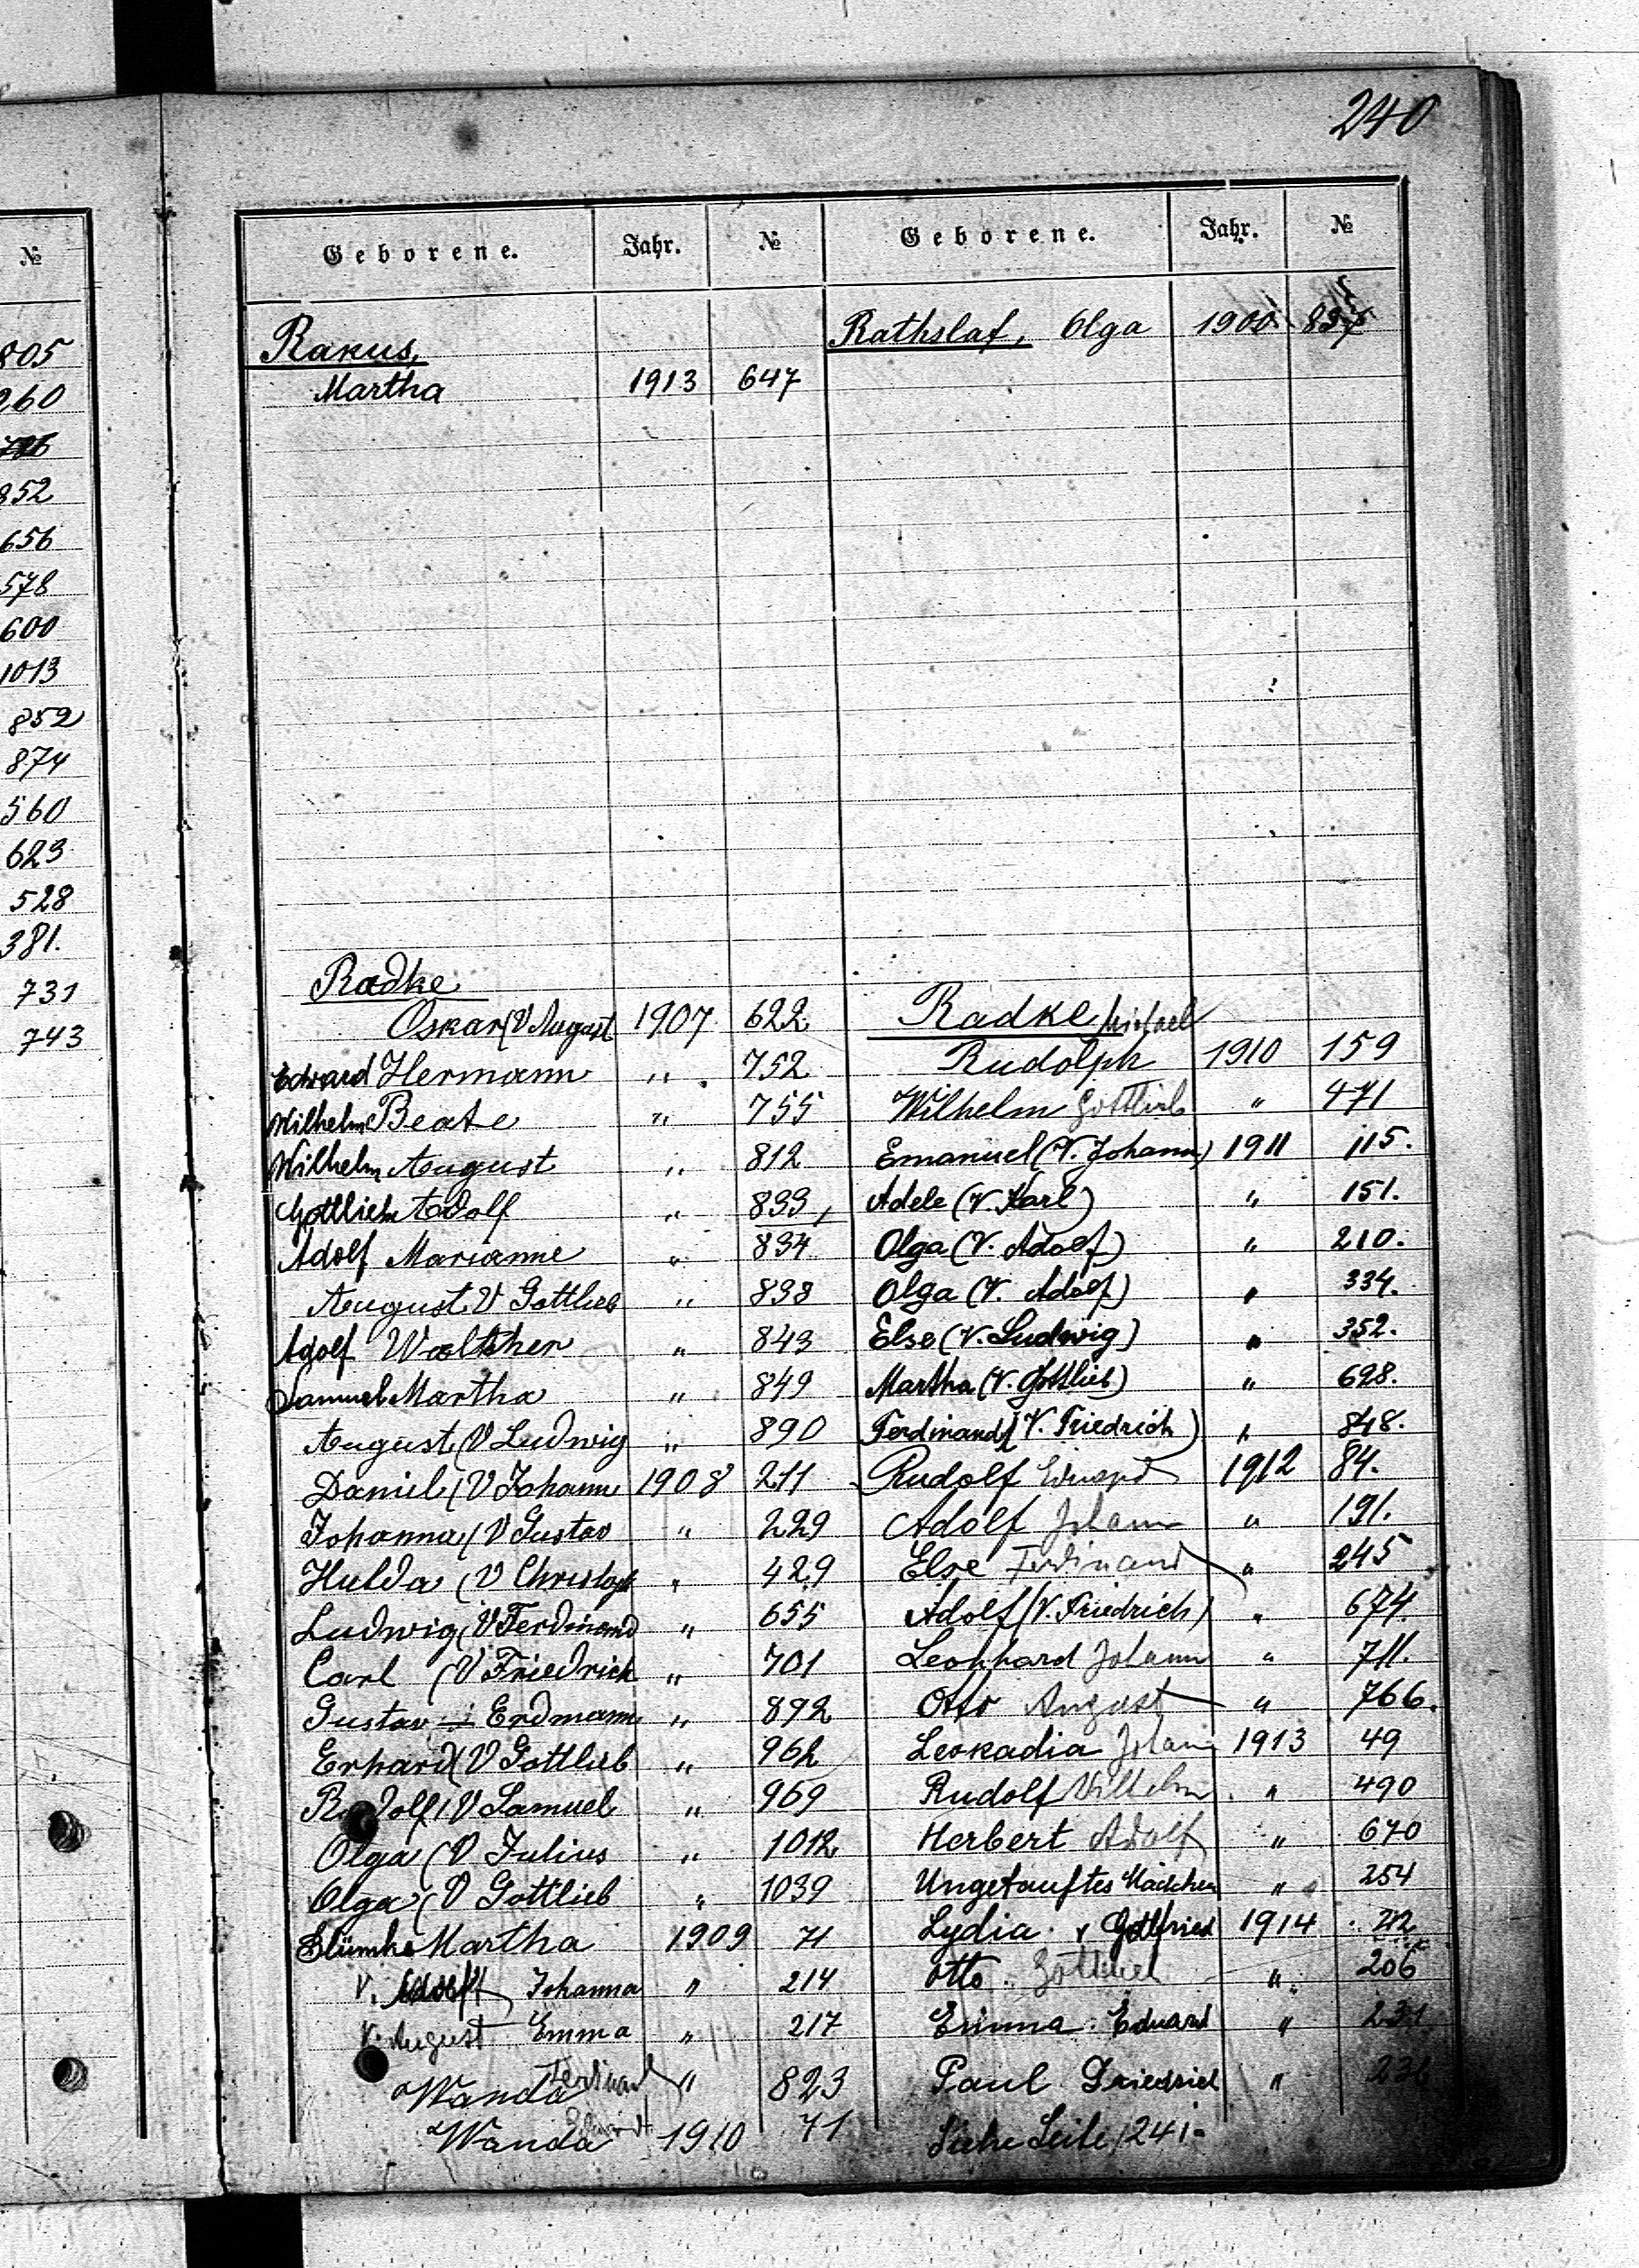 240
№
805
260
852
656
578
600
1013
852
874
560
623
528
381.
731
743
Geborene. Jahr. №
Rakus,
Martha 1913 647
Radke
Oskar (V August 1907 622
Edward Hermann " 752
Wilhelm Beate " 755
Wilhelm August " 812
Gottlieb Adolf " 833,
Adolf Marianne " 834
August V Gottlieb " 838
Adolf Walther " 843
Samuel Martha " 849
August (V Ludwig " 890
Daniel (V Johann 1908 211
Johanna (V Gustav " 229
Hulda (V " 429
Ludwig (V Ferdinand " 655
Carl (V Friedrich " 701
Gustav Erdmann " 892
Erhard (V Gottlieb " 962
(V Samuel " 969
Olga (V Julius " 1012
Olga (V Gottlieb " 1039
Martha 1909 71
V. Adolf Johanna " 214
V. August Emma " 217
Wanda Ferdinand " 823
Wanda 1910 71
Geborene. Jahr. №
Rathslaf, Olga 1900
Radke Michael
Rudolph 1910 159
Wilhelm Gottlieb " 471
Emanuel (V. Johann) 1911 115.
Adele (V. Karl) " 151.
Olga (V. Adolf) " 210.
Olga (V. Adolf) " 334.
Else (V. Ludwig) " 352.
Martha (V. Gottlieb) " 698.
Ferdinand (V. Friedrich) " 848.
Rudolf Eduard 1912 84.
Adolf Johann " 191.
Else Ferdinand " 245
Adolf (V. Friedrich) " 674.
Leonhard Johann " 711.
Otto August " 766.
Leokadia Johann 1913 49
Rudolf Wilhelm " 490
Herbert Adolf " 670
Ungetauftes Mädchen " 254
Lydia v Gottfried 1914 212
Otto Gottlieb " 206
Emma Eduard " 231
Paul Friedrich " 236
Siehe Seite 241.